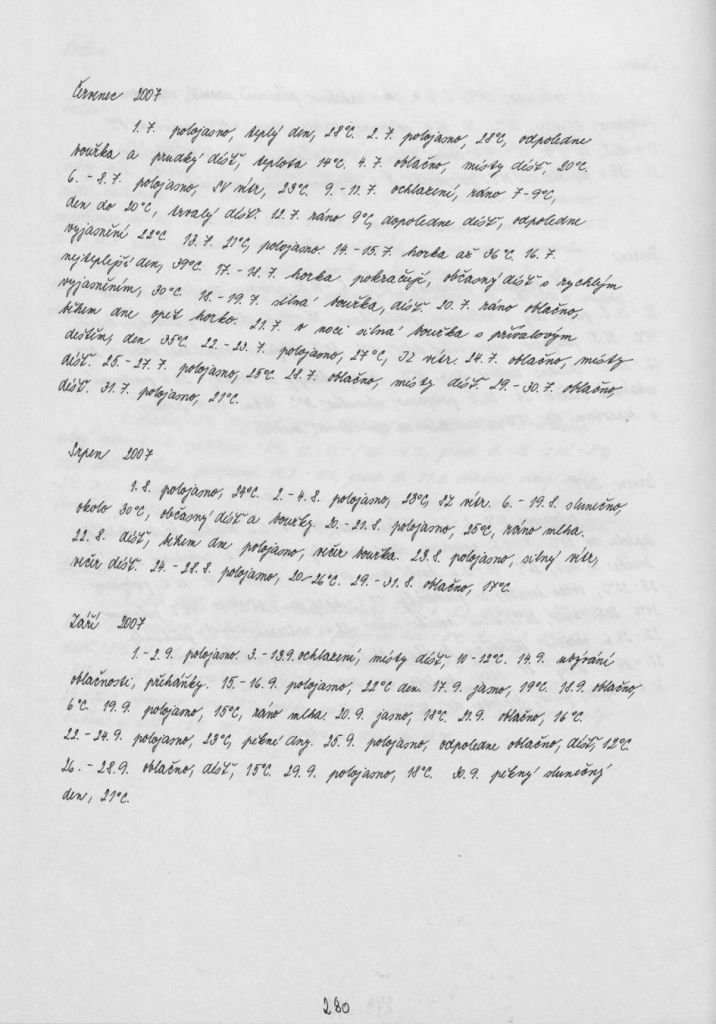 Červenec 2007
1.7. polojasno, teplý den, 28°C. 2.7. polojasno, 28°C, odpoledne
bouřka a prudký déšť, teplota 14°C. 4.7. oblačno, místy déšť, 20°C.
6.-8.7. polojasno, SV vítr, 23°C. 9.-11.7. ochlazení, ráno 7-9°C,
den do 20°C, trvalý déšť. 12.7. ráno 9°C, dopoledne déšť, odpoledne
vyjasnění 22°C. 13.7. 21°C, polojasno. 14.-15.7. horka až 36°C. 16.7.
nejteplejší den, 39°C. 17.-18.7. horka pokračují, občasný déšť s rychlým
vyjasněním, 30°C. 18.-19.7. silná bouřka, déšť. 20.7. ráno oblačno,
během dne opět horko. 21.7. v noci silná bouřka s přívalovým
deštěm, den 35°C. 22.-23.7. polojasno, 27°C, JZ vítr. 24.7. oblačno, místy
déšť. 25.-27.7. polojasno, 25°C. 28.7. oblačno, místy déšť. 29.-30.7. oblačno,
déšť. 31.7. polojasno, 21°C.
Srpen 2007
1.8. polojasno, 24°C. 2.-4.8. polojasno, 23°C, SZ vítr. 6.-19.8. slunečno,
okolo 30°C, občasný déšť a bouřky. 20.-21.8. polojasno, 25°C, ráno mlha.
22.8. déšť, během dne polojasno, večer bouřka. 23.8. polojasno, silný vítr,
večer déšť. 24.-28.8. polojasno, 20-26°C. 29.-31.8. oblačno, 17°C.
Září 2007
1.-2.9. polojasno. 3.-13.9. ochlazení, místy déšť, 10-12°C. 14.9. ubývání
oblačnosti, přeháňky. 15.-16.9. polojasno, 22°C den. 17.9. jasno, 19°C. 18.9. oblačno,
6°C. 19.9. polojasno, 15°C, ráno mlha. 20.9. jasno, 18°C. 21.9. oblačno, 16°C.
22.-24.9. polojasno, 23°C, pěkné dny. 25.9. polojasno, odpoledne oblačno, déšť, 12°C.
26.-28.9. oblačno, déšť, 15°C. 29.9. polojasno, 18°C. 30.9. pěkný slunečný
den, 21°C.
280